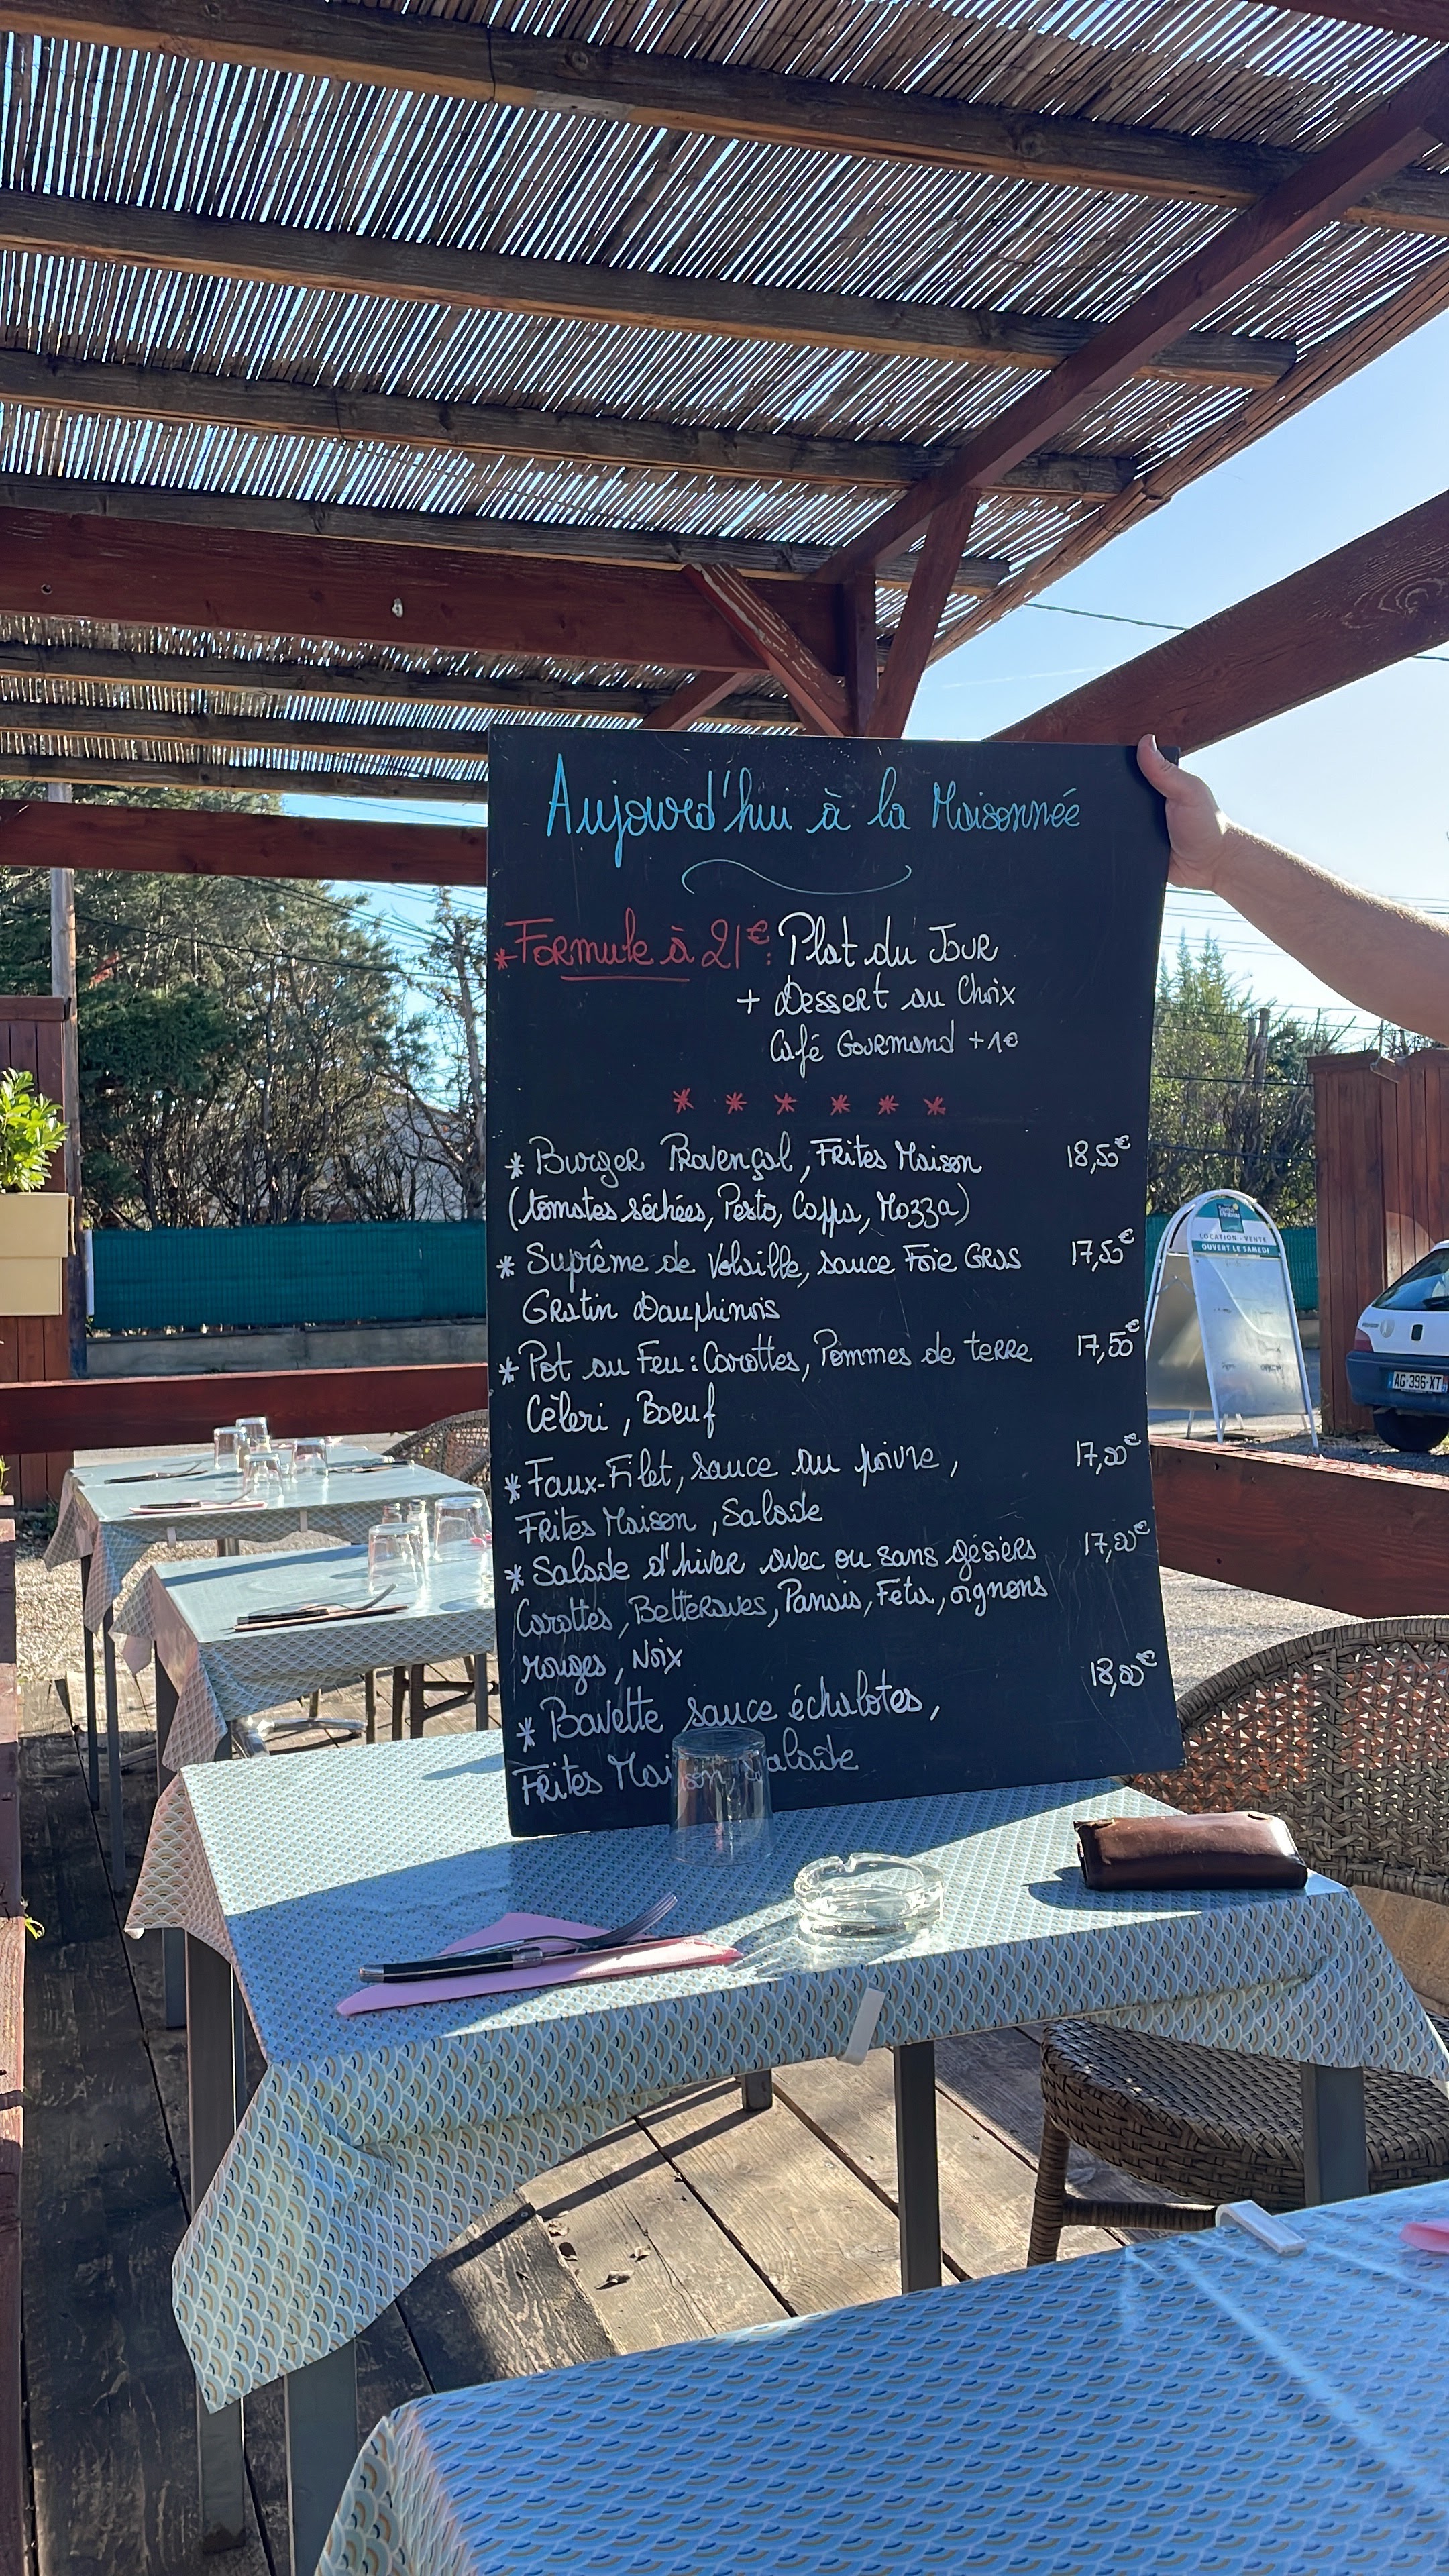 Aujourd'hui à la Maisonnée
*Formule à 21€ : Plat du Jour
+ Dessert au Choix
Café Gourmand +1€
* * * * * *
* Burger Provençal, Frites Maison 18,50€
(tomates séchées, Pesto, Coppa, Mozza)
* Suprême de Volaille, sauce Foie Gras 17,50€
Gratin Dauphinois
* Pot au Feu : Carottes, Pommes de terre 17,50€
Cèleri, Boeuf
* Faux-Filet, sauce au poivre, 17,00€
Frites Maison, Salade
* Salade d'hiver avec ou sans gésiers 17,00€
Carottes, Betteraves, Panais, Feta, oignons
rouges, Noix
* Bavette sauce échalotes, 18,00€
Frites Maison, Salade
LOCATION - VENTE
OUVERT LE SAMEDI
AG-396-XT